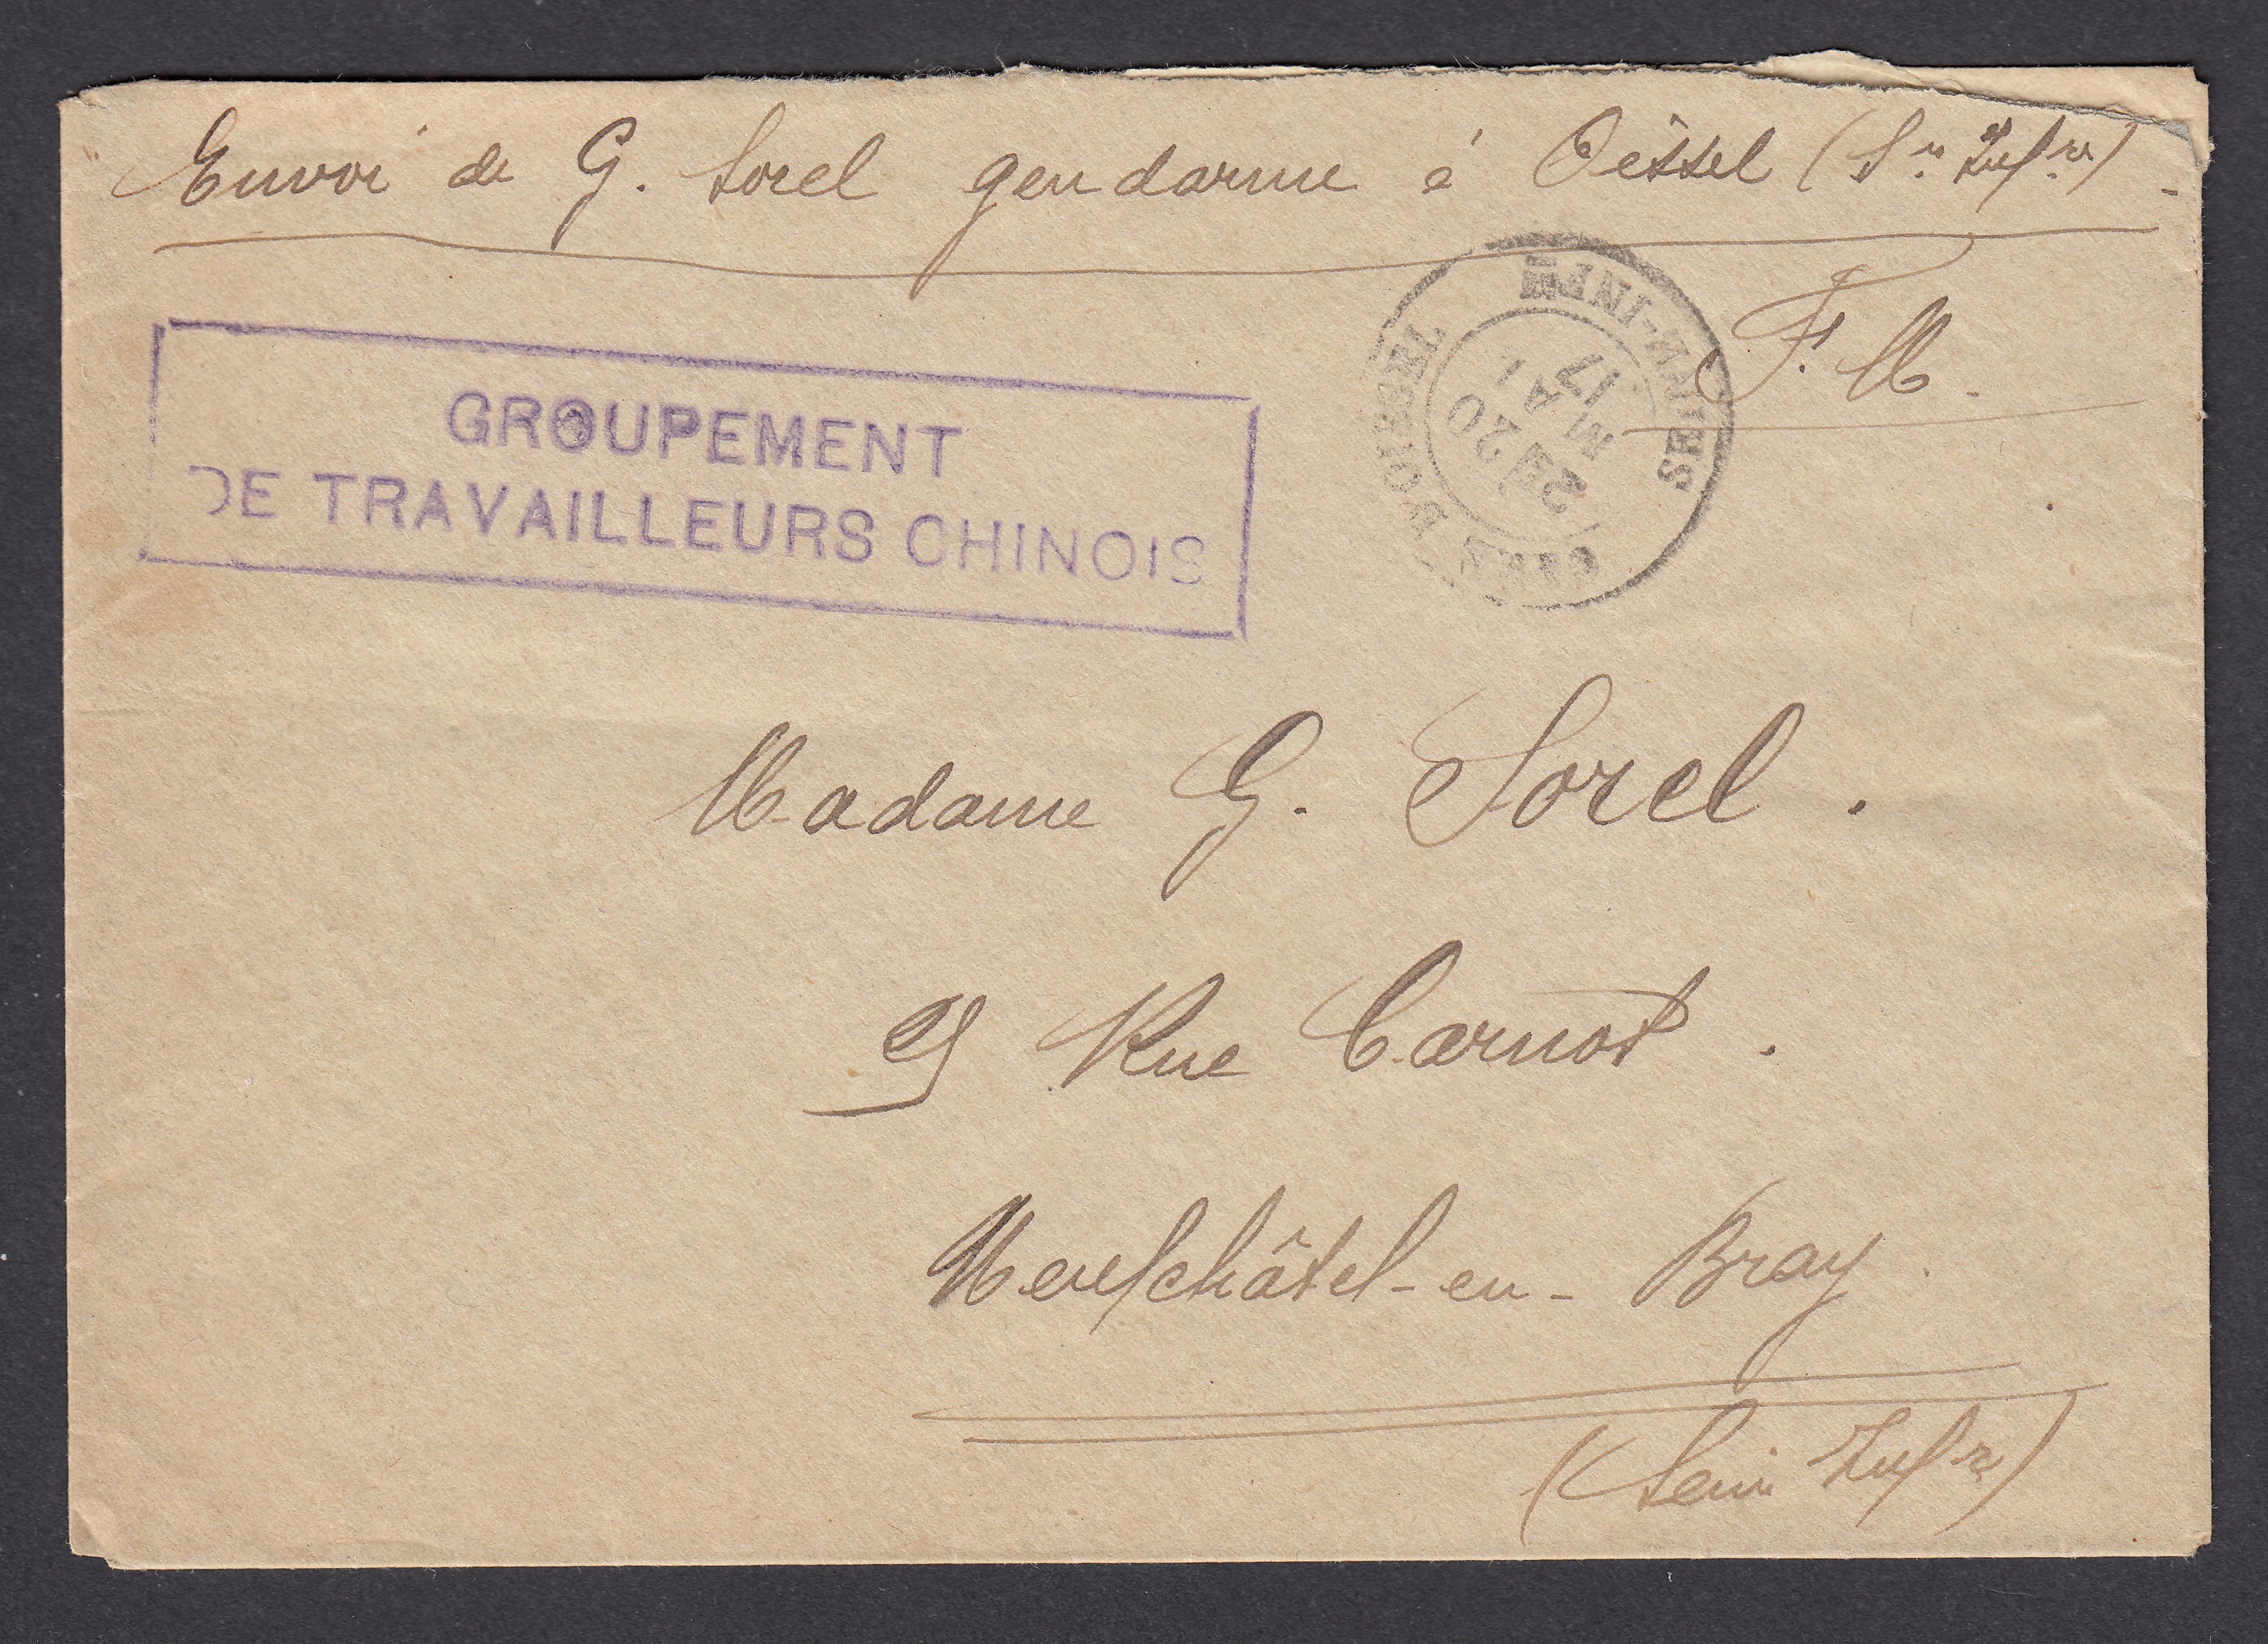 Envoi de G. Sorel gendarme à Oissel (Sne Infre)
F. M.
GROUPEMENT
DE TRAVAILLEURS CHINOIS
GARE D'OISSEL SEINE-INFRE
20
MAI
17
Madame G. Sorel.
Rue Carnot.
Neufchâtel-en-Bray
(Seine Infre)